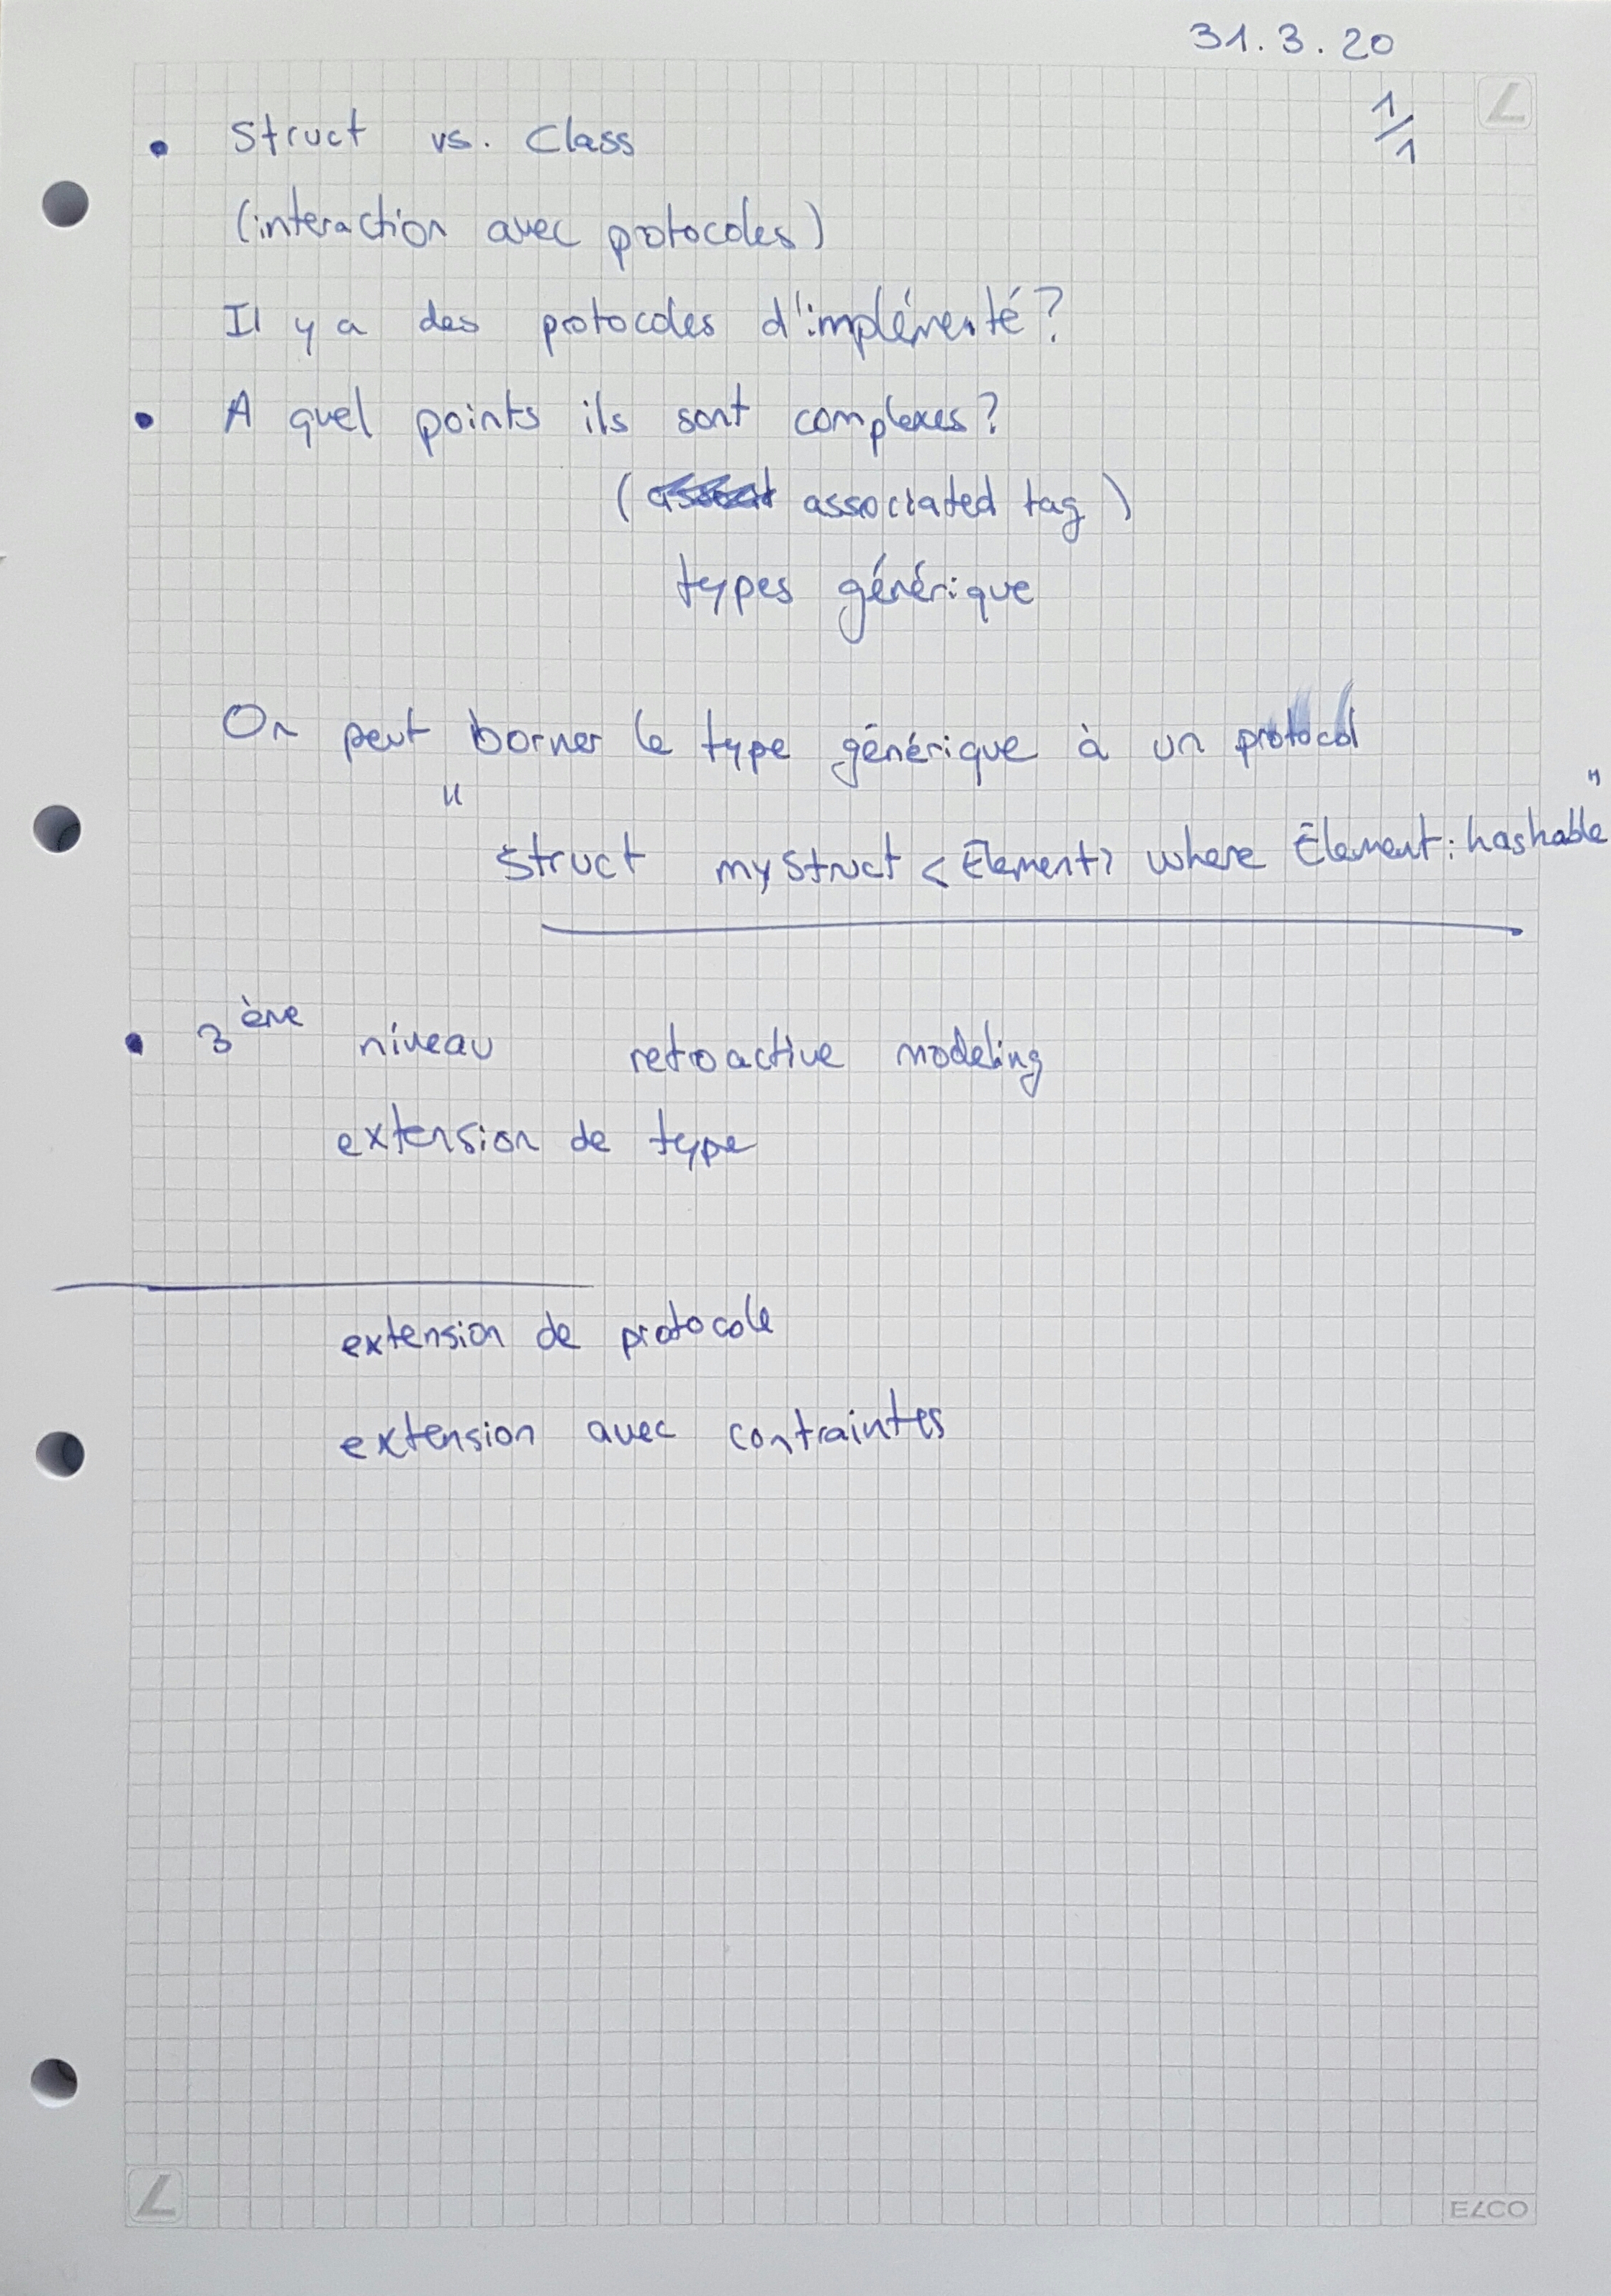 31.3.20
1/1
• Struct vs. Class
(interaction avec protocoles)
Il y a des protocoles d'implémenté?
• A quel points ils sont complexes?
( associated tag)
types générique
On peut borner le type générique à un protocol
"struct mystruct <Element> where Element: hashable"
• 3ème niveau retroactive modeling
extension de type
extension de protocole
extension avec contraintes
ELCO